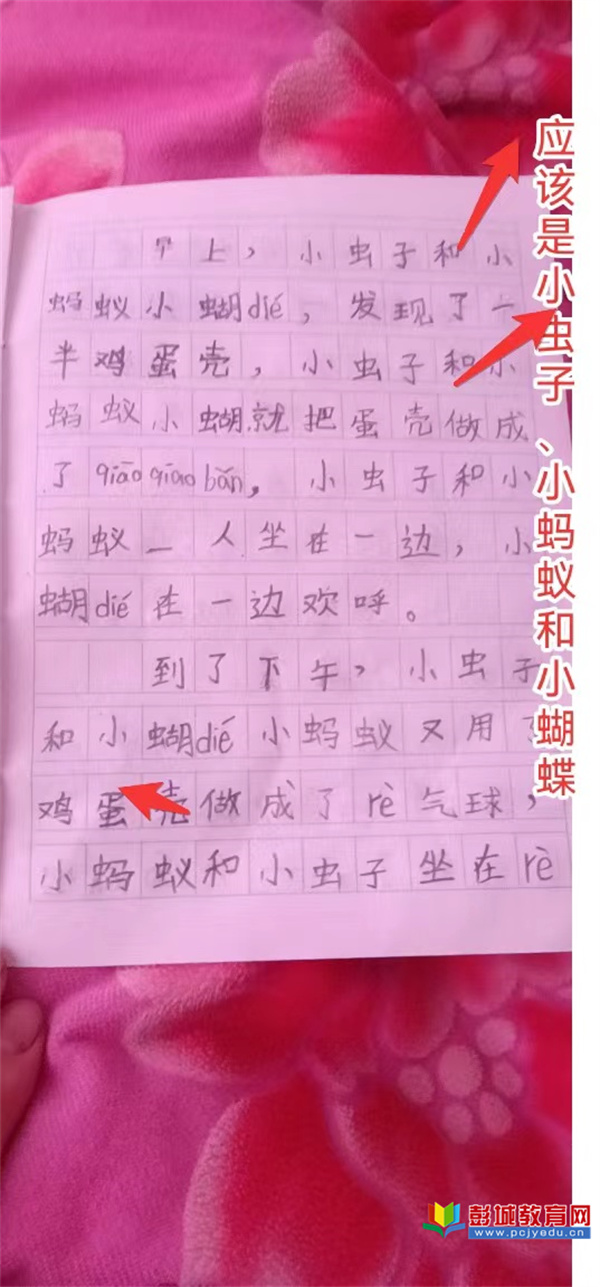 早上，小虫子和小
蚂蚁小蝴dié，发现了一
半鸡蛋壳，小虫子和小
蚂蚁小蝴就把蛋壳做成
了qiāoqiāobǎn，小虫子和小
蚂蚁一人坐在一边，小
蝴dié在一边欢呼。
到了下午，小虫子
和小蝴dié小蚂蚁又用了
鸡蛋壳做成了rè气球，
小蚂蚁和小虫子坐在rè
应该是小虫子、小蚂蚁和小蝴蝶
彭城教育网
www.pcjyedu.cn